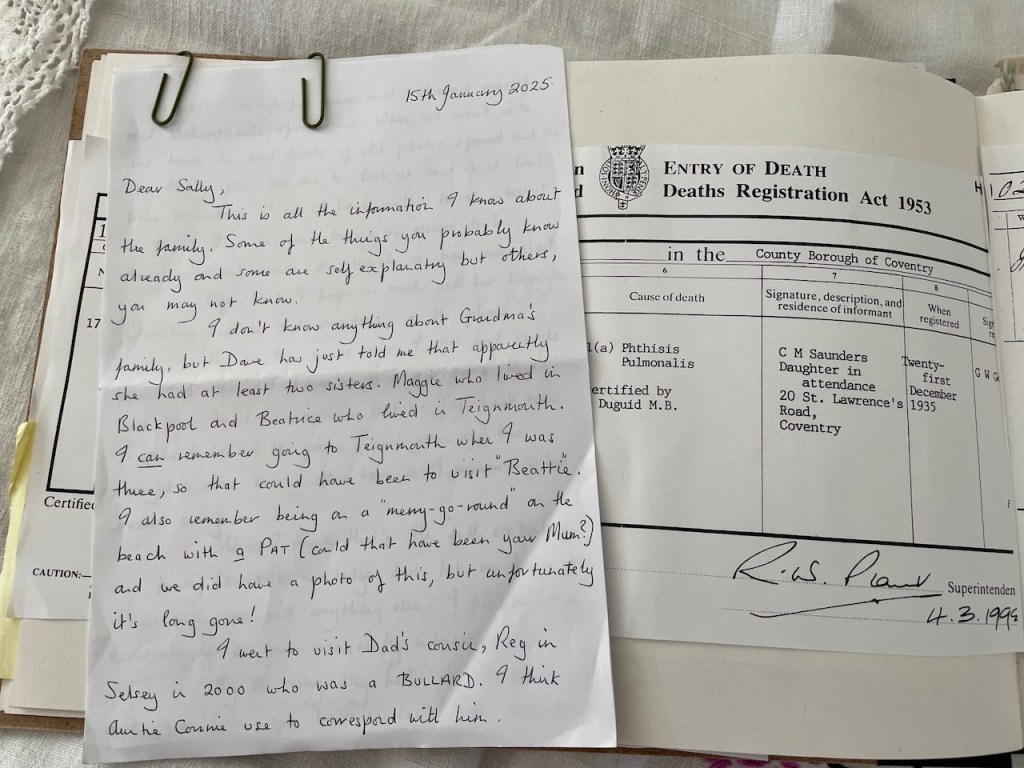 15th January 2025.
Dear Sally,
This is all the information I know about
the family. Some of the things you probably know
already and some are self explanatry but others,
you may not know.
I don't know anything about Grandma's
family, but Dave has just told me that apparently
she had at least two sisters. Maggie who lived in
Blackpool and Beatrice who lived in Teignmouth.
I can remember going to Teignmouth when I was
three, so that could have been to visit "Beattie".
I also remember being on a "merry-go-round" on the
beach with a PAT (could that have been your Mum?)
and we did have a photo of this, but unfortunately
it's long gone!
I went to visit Dad's cousin, Reg in
Selsey in 2000 who was a BULLARD. I think
Auntie Connie use to correspond with him.
17
Certifie
CAUTION:—
ENTRY OF DEATH
Deaths Registration Act 1953
in the County Borough of Coventry
6 7 8
Cause of death
Signature, description, and
residence of informant
When
registered
1(a) Phthisis
Pulmonalis
ertified by
Duguid M.B.
C M Saunders
Daughter in
attendance
20 St. Lawrence's
Road,
Coventry
Twenty-
first
December
1935
G W G
Superintenden
4.3.199